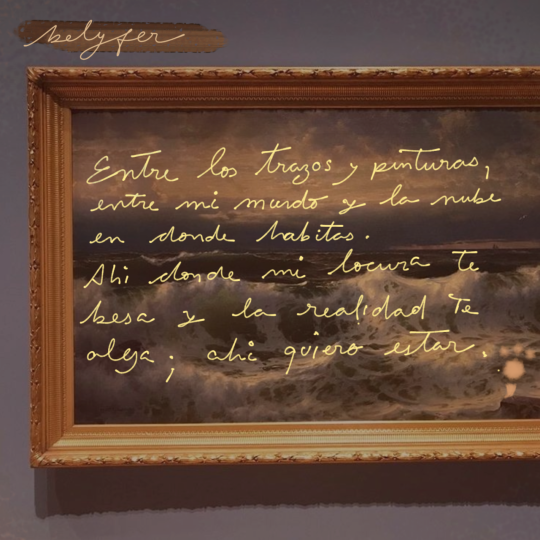 belyfer
Entre los trazos y pinturas,
entre mi mundo y la nube
en donde habitas.
Ahi donde mi locura te
besa y la realidad te
aleja; ahi quiero estar.